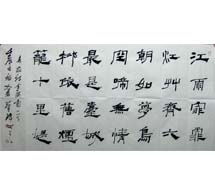 江雨霏霏
江草齊六
朝如夢鳥
空啼無情
最是臺城
柳依舊煙
籠十里堤